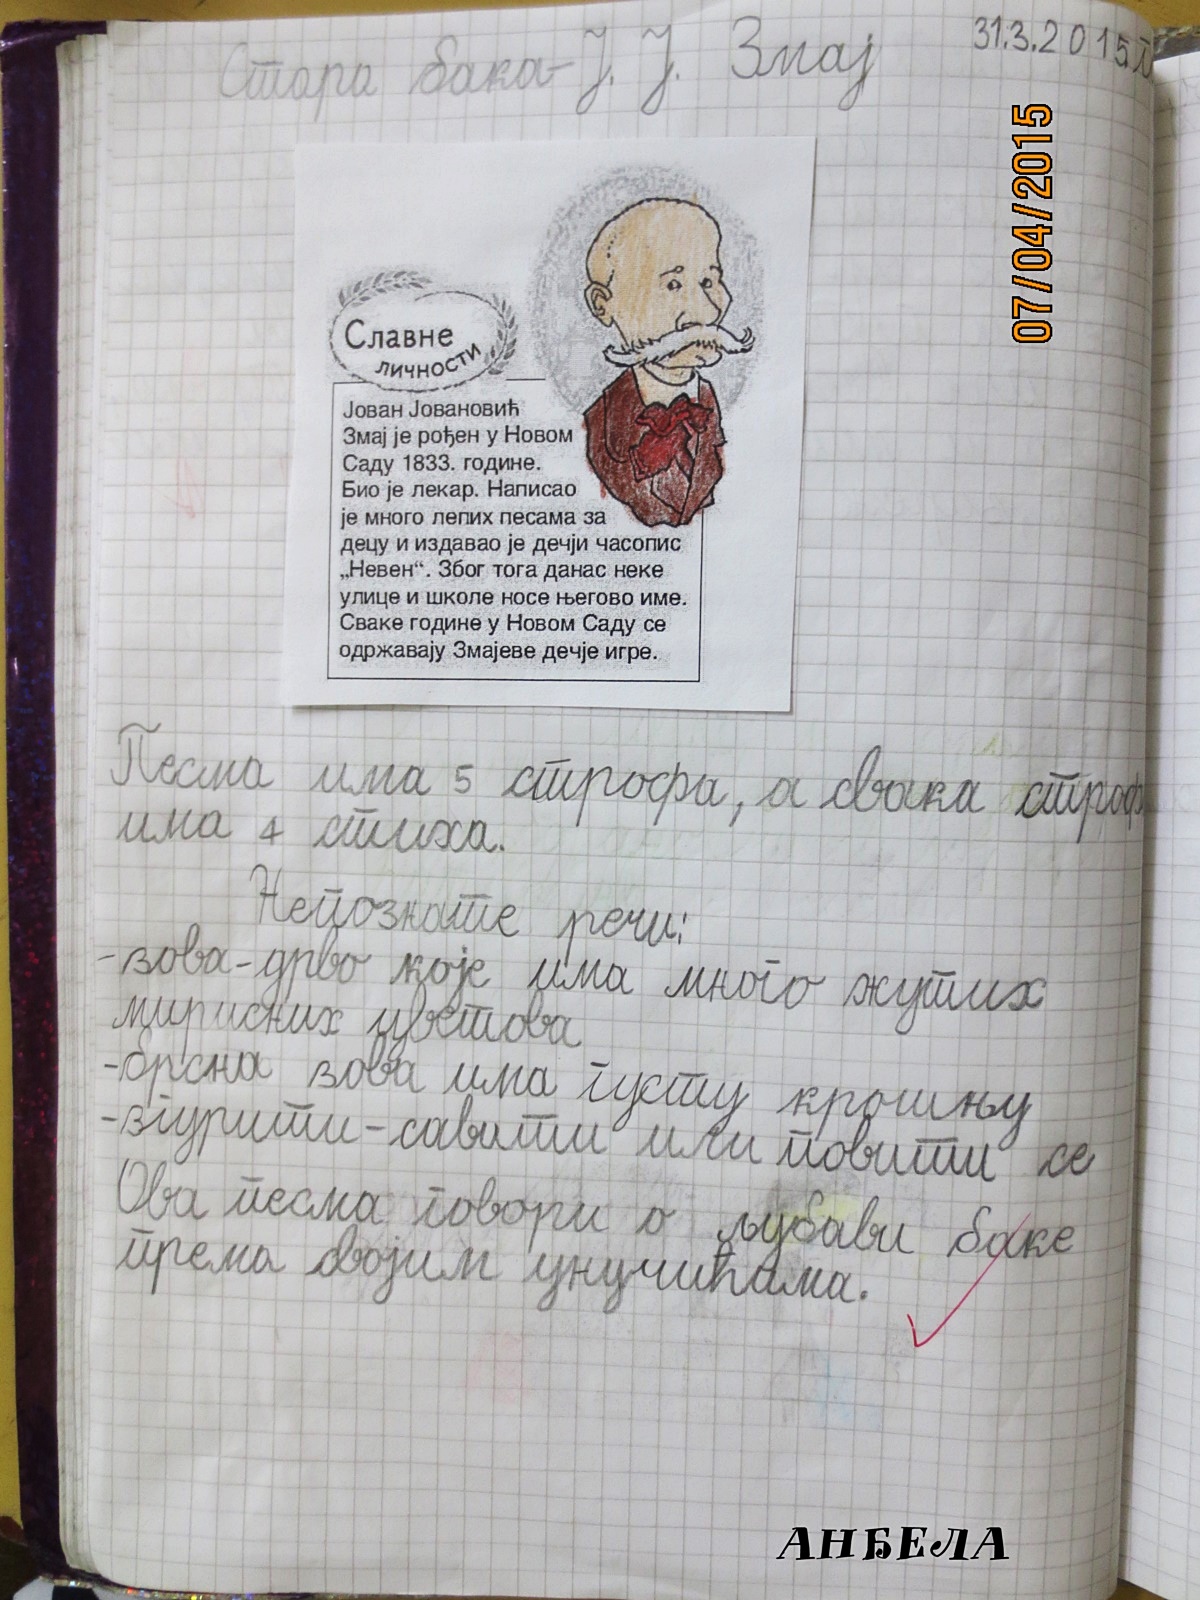 Стара бака - Ј. Ј. Змај
31.3.2015.
07/04/2015
Славне
личности
Јован Јовановић
Змај је рођен у Новом
Саду 1833. године.
Био је лекар. Написао
је много лепих песама за
децу и издавао је дечји часопис
„Невен“. Због тога данас неке
улице и школе носе његово име.
Сваке године у Новом Саду се
одржавају Змајеве дечје игре.
Песма има 5 строфа, а свака строф
има 4 стиха.
Непознате речи:
-зова-дрво које има много жутих
мирисних цветова
-брсна зова има густу крошњу
-згурити-савити или повити се
Ова песма говори о љубави баке
према својим унучићима.
АНЂЕЛА